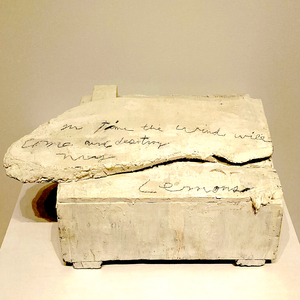 In Time the Wind will
Come and destroy
my
Lemons